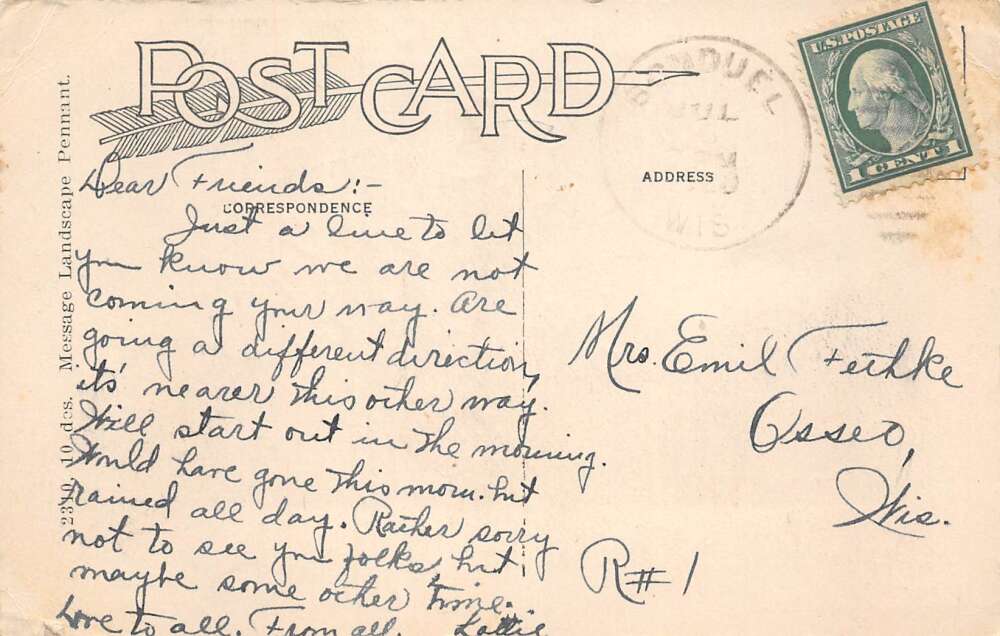 POST CARD
U.S. POSTAGE
1 CENT 1
BONDUEL
JUL
WIS
ADDRESS
CORRESPONDENCE
2310 10 des. Message Landscape Pennant.
Dear Friends:-
Just a line to let
you know we are not
coming your way. Are
going a different direction,
its' nearer this other way.
Will start out in the morning.
Would have gone this morn. but
rained all day. Rather sorry
not to see you folks but
maybe some other time.
Love to all. From all. Lottie
Mrs. Emil Fethke
Osseo,
Wis.
R#1